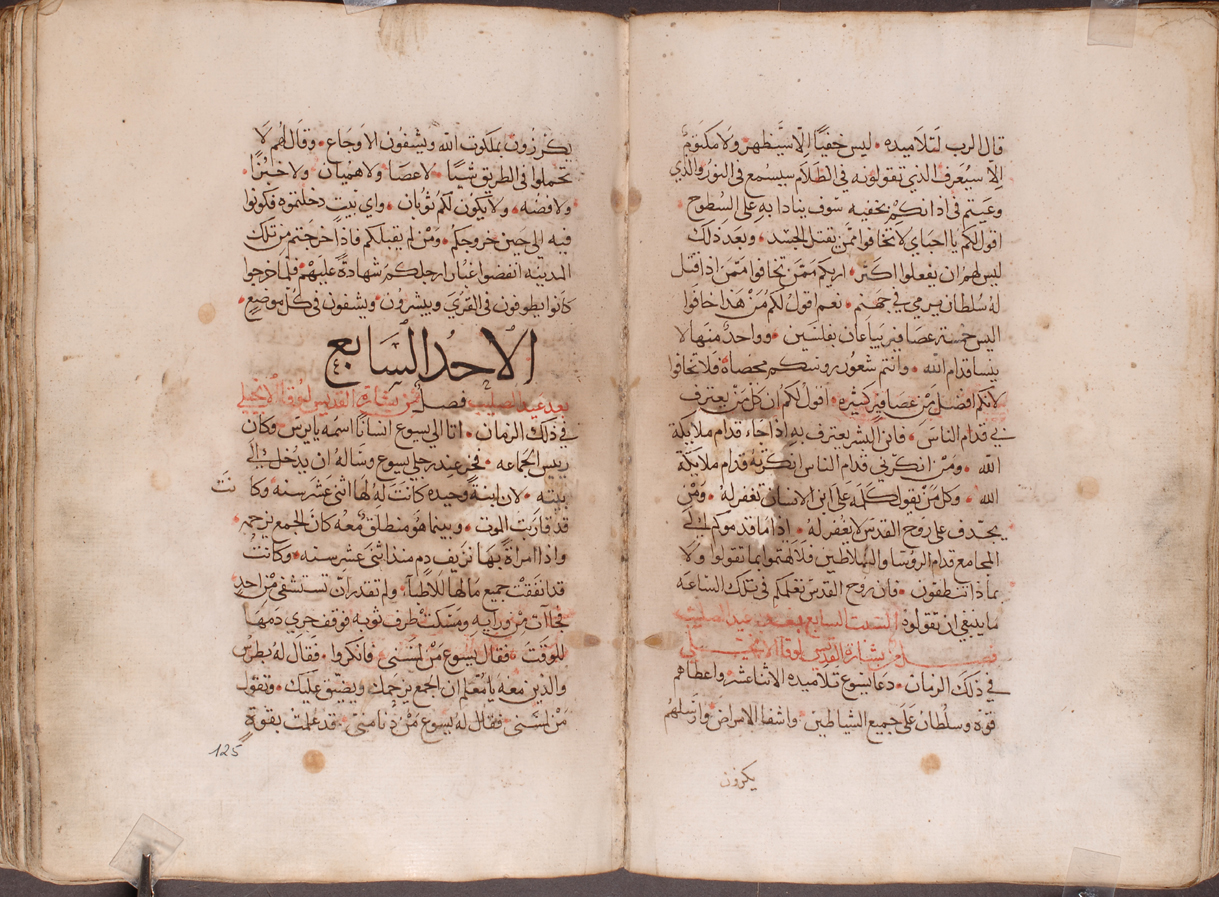 قال الرب لتلاميذه • ليس خفيًا الا سيظهر ولا مكتوم
الا سيعرف الذي تقولونه في الظلام سيسمع في النور والذي
وعيتم في اذانكم بخفيه سوف ينادا به على السطوح •
اقول لكم يا احباي لا تخافوا ممن يقتل الجسد • وبعد ذلك
ليس لهم ان يفعلوا اكثر • اريكم ممن تخافوا ممن اذا قتل
له سلطان يرمي في جهنم • نعم اقول لكم من هذا خافوا
اليس خمسة عصافير يباعان بفلسين • وواحد منها لا
ينسا قدام الله • وانتم شعور روسكم محصاة فلا تخافوا
لانكم افضل من عصافير كثيره • اقول لكم ان كل من يعترف
في قدام الناس • فابن البشر يعترف به اذا جاء قدام ملايكة
الله • ومن انكرني قدام الناس انكر به قدام ملايكة
الله • وكل من يقول كلمه على ابن الانسان تغفر له • ومن
يجدف على روح القدس لا يغفر له • اذا ما قدموكم الى
المجامع قدام الروسا والسلاطين فلا تهتموا بما تقولوا ولا
بماذا تنطقون • فان روح القدس تعلمكم في تلك الساعه
ما ينبغي ان تقولوه السبت السابع بعد عيد الصليب
فصل من بشارة القديس لوقا الانجيلي
في ذلك الزمان • دعا يسوع تلاميذه الاثناعشر واعطاهم
قوه وسلطان على جميع الشياطين • واشفا الامراض وارسلهم
يكرزون
يكرزون بملكوت الله ويشفون الاوجاع • وقال لهم لا
تحملوا في الطريق شيًا • لا عصا ولا هميان • ولا خبزًا •
ولا فضه • ولا يكون لكم ثوبان • واي بيت دخلتموه فكونوا
فيه الى حين خروجكم • ومن لم يقبلكم فاذا خرجتم من تلك
المدينه انفضوا غبار ارجلكم شهادة عليهم • فلما خرجوا
كانوا يطوفون في القرى ويبشرون • ويشفون في كل موضع •
الاحد السابع
بعد عيد الصليب فصل من بشارة القديس لوقا الانجيلي
في ذلك الزمان • اتا الى يسوع انسانًا اسمه يايرس وكان
رييس الجماعه • فخر عند رجلي يسوع وساله ان يدخل الى
بيته • لان ابنة وحيده كانت له لها اثنى عشر سنه وكا نت
قد قاربت الموت • وبينما هو منطلق معه كان الجمع يزحمه •
واذا امراة بها نزيف دم منذ اثنى عشر سنه • وكانت
قد انفقت جميع مالها للاطبا • ولم تقدر ان تستشفى من احد
فجاات من ورايه ومسكت طرف ثوبه فوقف جري دمها
للوقت • فقال يسوع من لمسني • فانكروا • فقال له بطرس
والذين معه يا معلم ان الجمع يزحمك ويضيق عليك • وتقول
من لمسني • فقال له يسوع من دنا مني • قد علمت بقوة
125